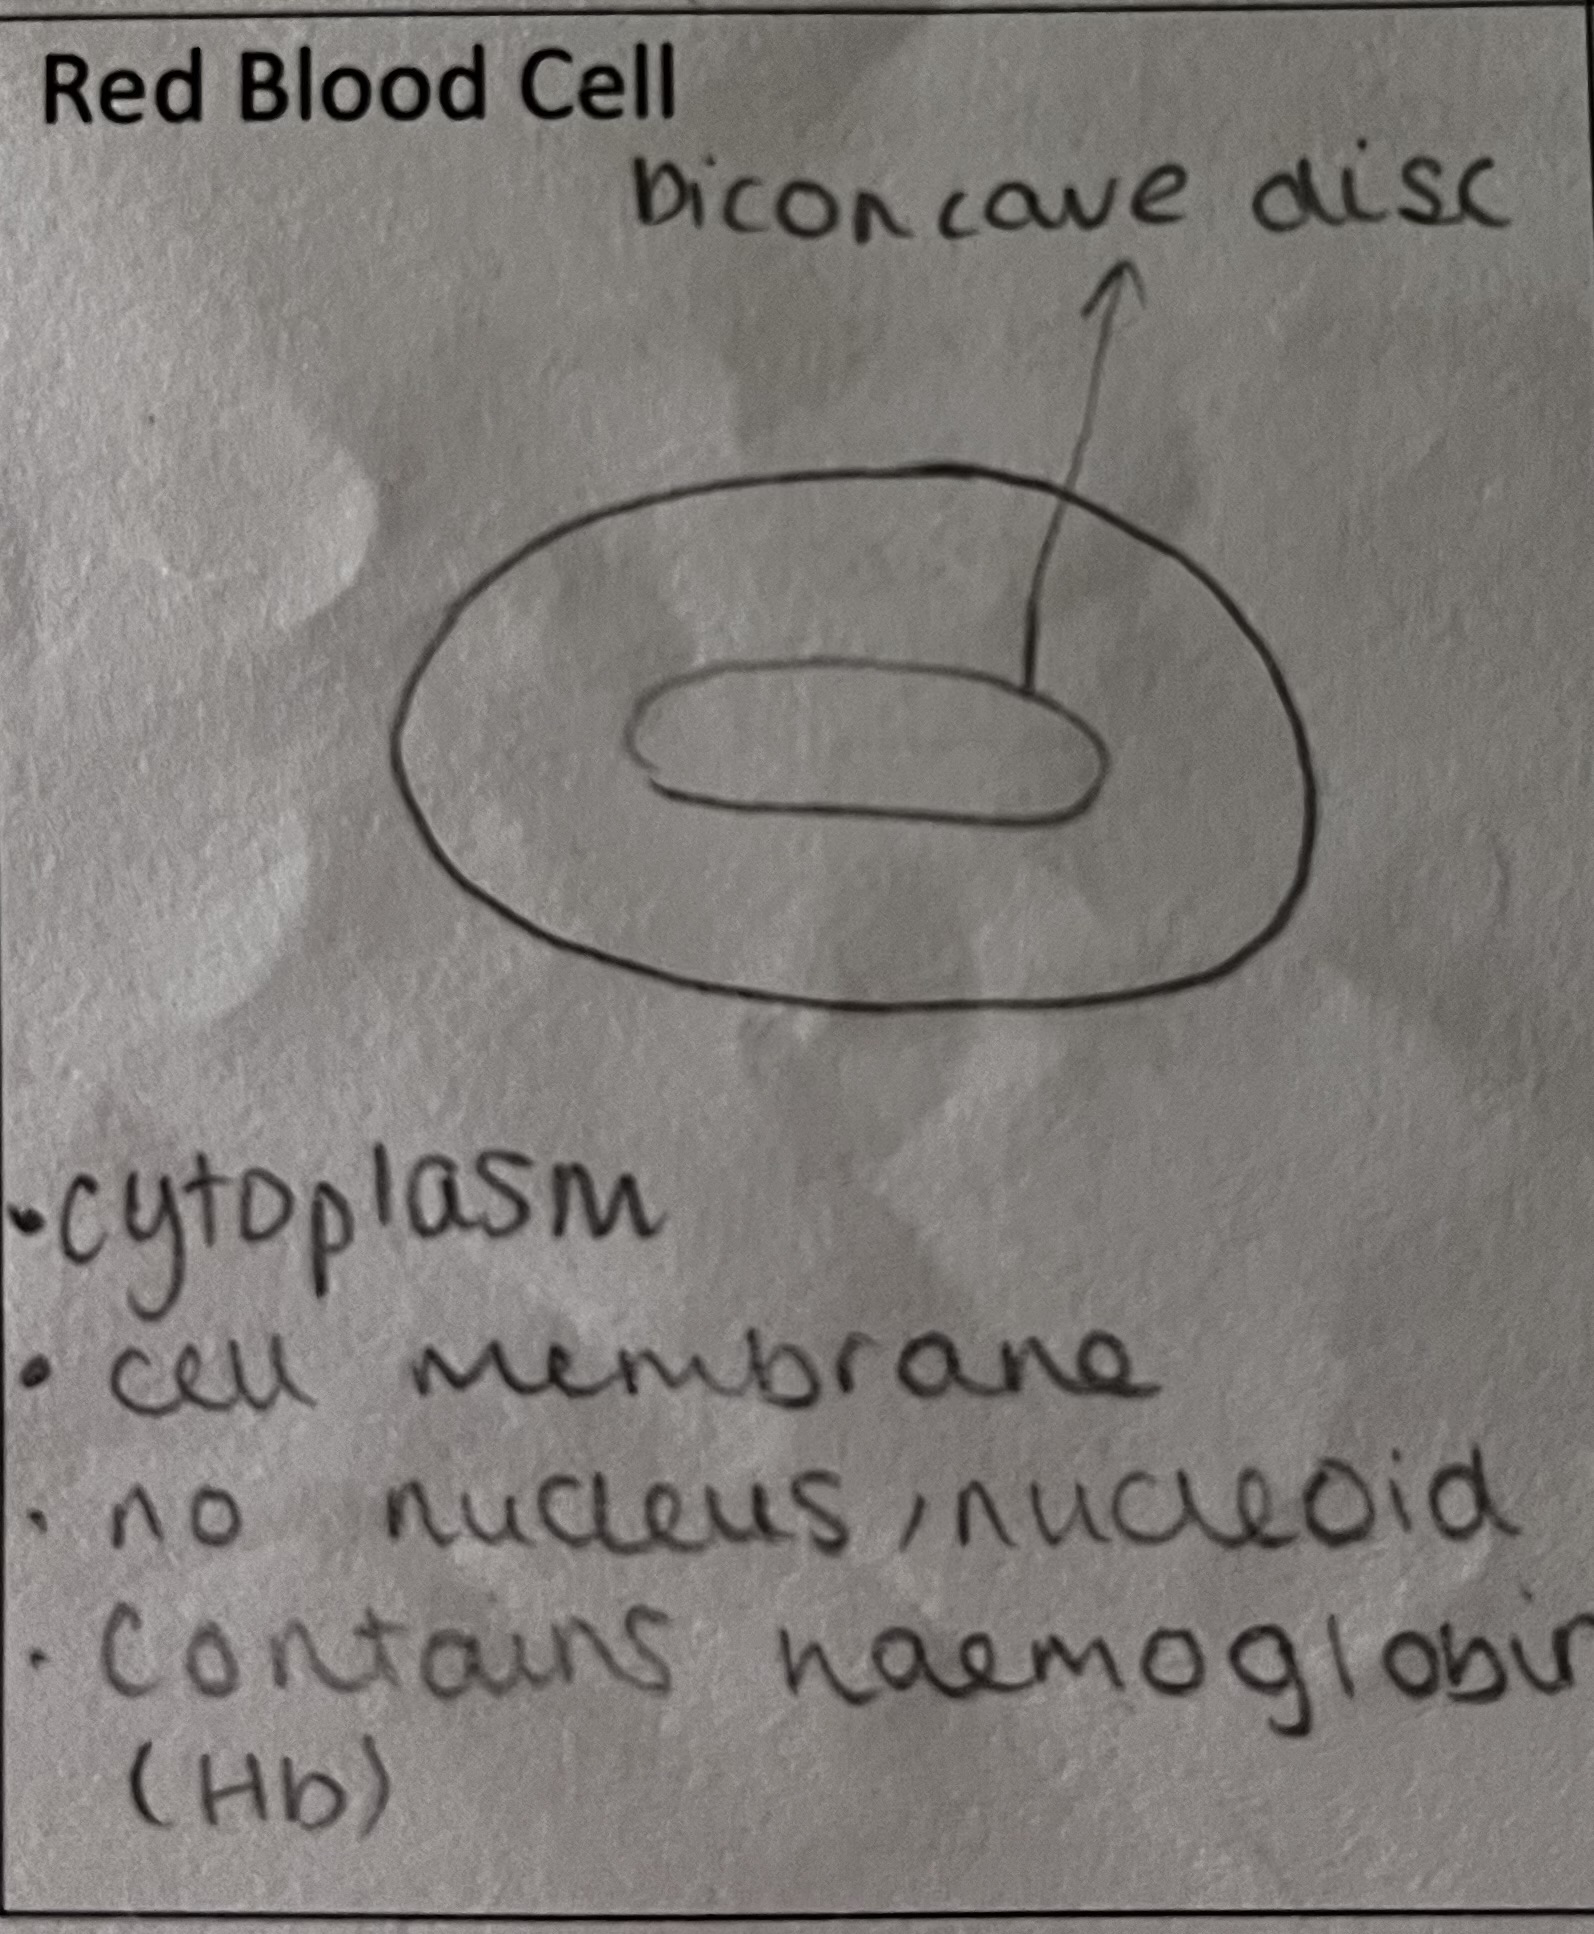 Red Blood Cell
biconcave disc
•cytoplasm
• cell membrane
• no nucleus, nucleoid
• Contains haemoglobin
(Hb)